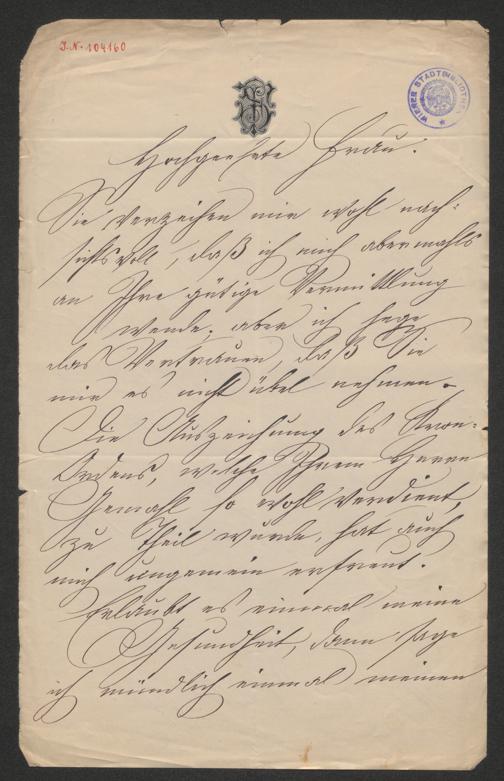 J.N. 104160
WIENER STADTBIBLIOTHEK
Hochgeehrte Frau.
Sie verzeihen mir wohl nach=
sichtsvoll, daß ich mich abermahls
an Ihre gütige Vermittlung
wende. aber ich hege
das Vertrauen, daß Sie
mir es nicht übel nehmen.
Die Auszeichnung des Kron=
Ordens, welche Ihrem Herrn
Gemahl so wohl verdient,
zu Theil wurde, hat auch
mich ungemein erfreut.
Erlaubt es einmal meine
Gesundheit, dann sage
ich mündlich einmal meinen